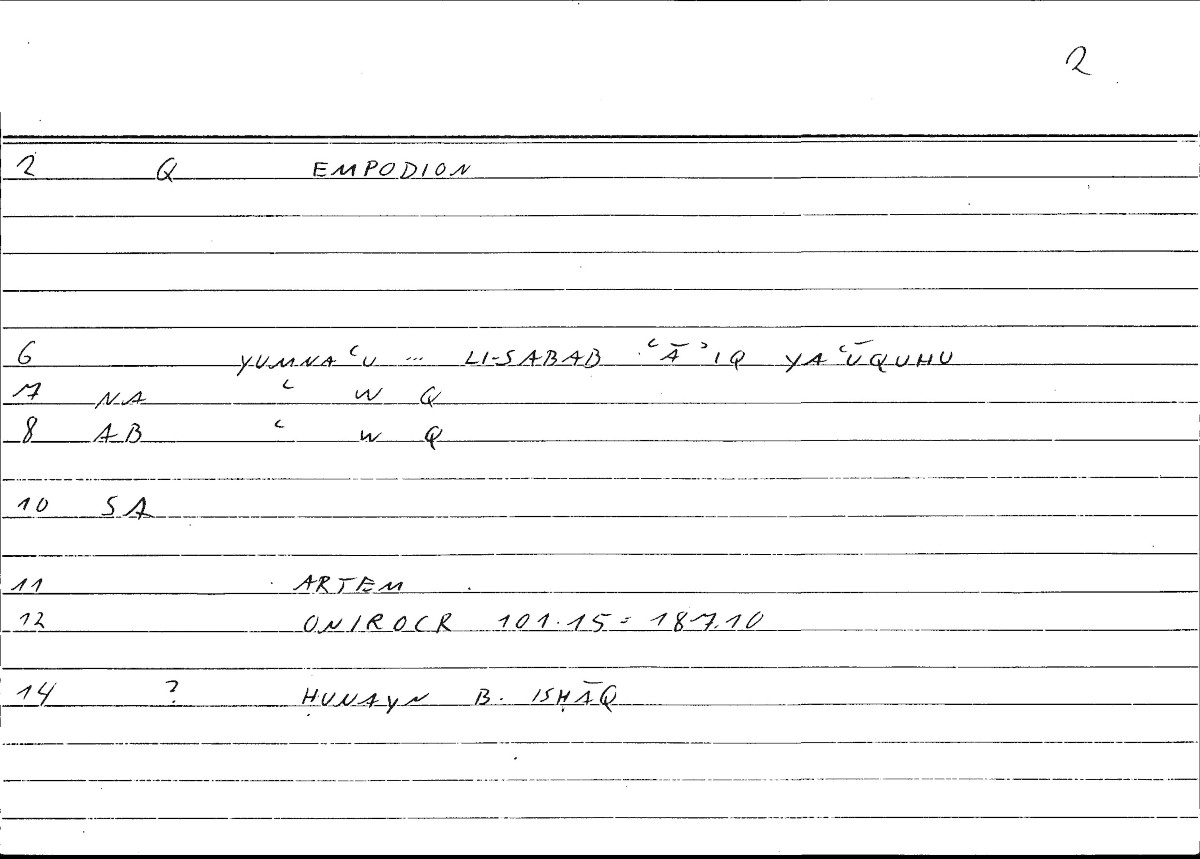 2
2 Q EMPODION
6 YUMNAʿU ... LI-SABAB ʿĀʾIQ YAʿŪQUHU
7 NA ʿ W Q
8 AB ʿ W Q
10 SA
11 ARTEM
12 ONIROCR 101.15 = 187.10
14 ? ḤUNAYN B. ISḤĀQ